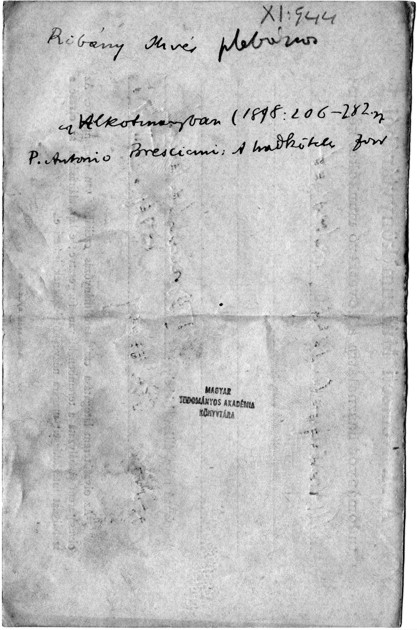 XI:944
Ribány Imre plebános
az Alkotmányban (1898: 206–282. sz
P. Antonio Bresciani: A hadköteles
MAGYAR
TUDOMÁNYOS AKADÉMIA
KÖNYVTÁRA